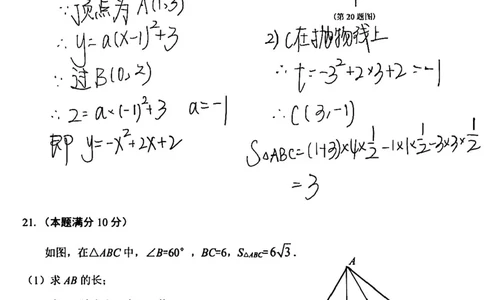 ∵顶点为A(1,3)
∴y=a(x-1)²+3
∵过B(0,2)
∴2=a×(-1)²+3 a=-1
即 y=-x²+2x+2
(第20题图)
2) C在抛物线上
∴t=-3²+2×3+2=-1
∴C(3,-1)
S△ABC=(1+3)×4×1/2-1×1×1/2-3×3×1/2
=3
21. (本题满分10分)
如图，在△ABC中，∠B=60°，BC=6，S△ABC=6√3.
(1) 求AB的长；
A